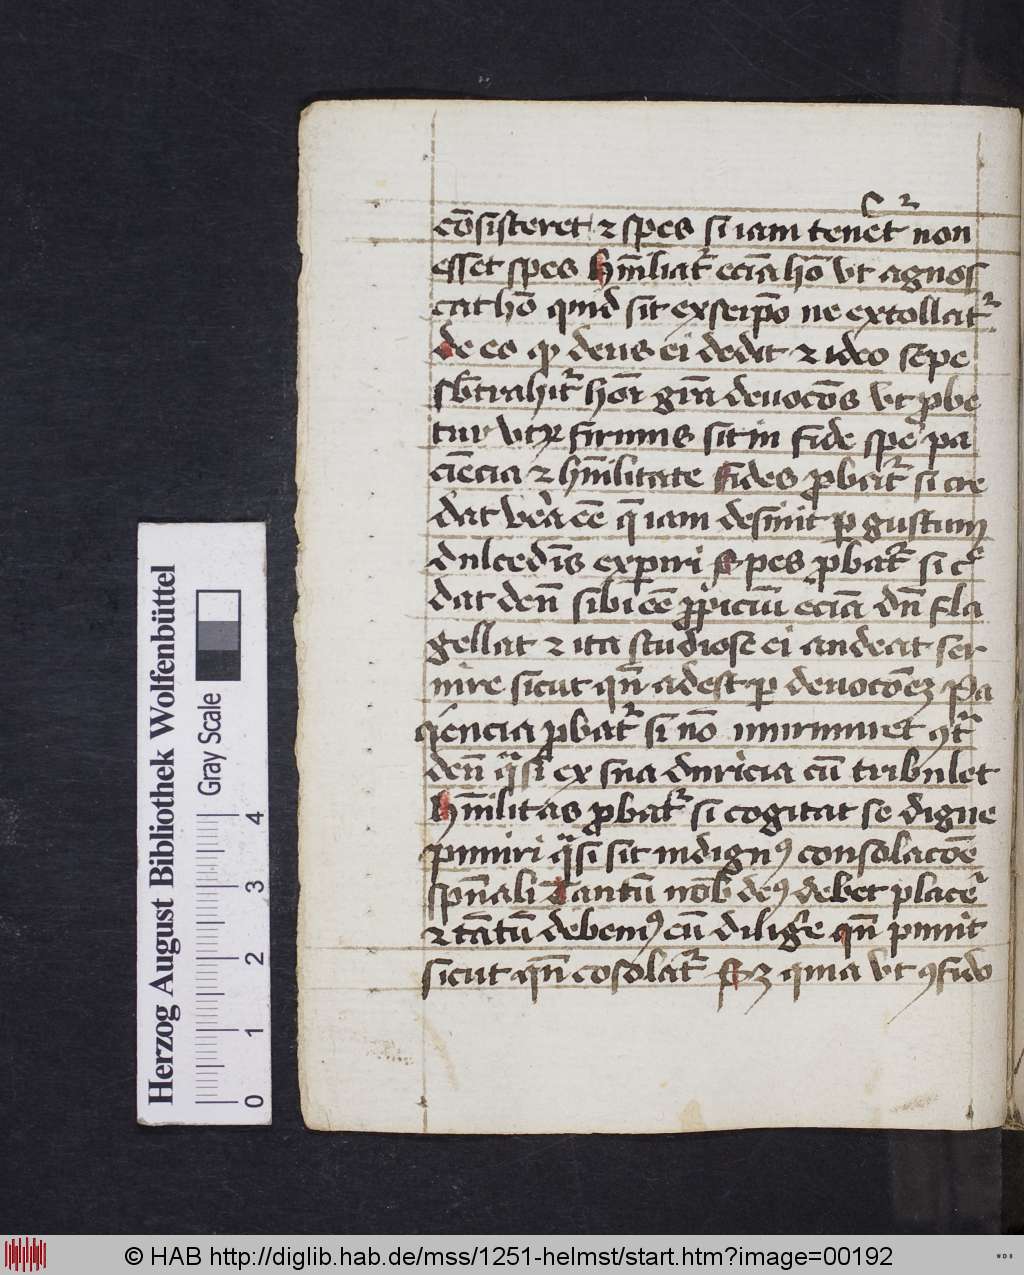 cōsisteret ⁊ spes si iam tenet᷑ non
esset spes hm̄iliat᷑ eciā hō vt agnos
cat hō quid sit ex seip̄o ne extollat᷑
de es qd deus ei dedit ⁊ ideo sepe
sb̄trahit᷑ hōi grā deuocōis vt ꝓbe
tur vtꝝ firmus sit in fide spe pa
ciēcia ⁊ hm̄ilitate fides ꝓbat᷑ si cre
dat vera eē q̄ iam desinit ꝑ gustum
dulcedīs exꝑiri spes ꝓbat᷑ si c͛
dat deū sibi eē ꝓpiciū eciā dū fla
gellat ⁊ ita studiose ei audeat ser
uire sicut qn̄ adest ꝑ deuocōēꝫ Pa
ciencia ꝓbat᷑ si nō murmuret ꝯt᷑
deū q̄si ex sua duricia eū tribulet
hm̄ilitas ꝓbat᷑ si cogitat se digne
puniri q̄si sit indignꝰ consolacōe
spūali Tantū nob deꝰ debet place͛
⁊ tātū debemꝰ eū dilige͛ qn̄ punit
sicut qn̄ cosolat᷑ Sꝫ quia vt ꝯfido
Herzog August Bibliothek Wolfenbüttel
Gray Scale
0 1 2 3 4
© HAB http://diglib.hab.de/mss/1251-helmst/start.htm?image=00192
WDB